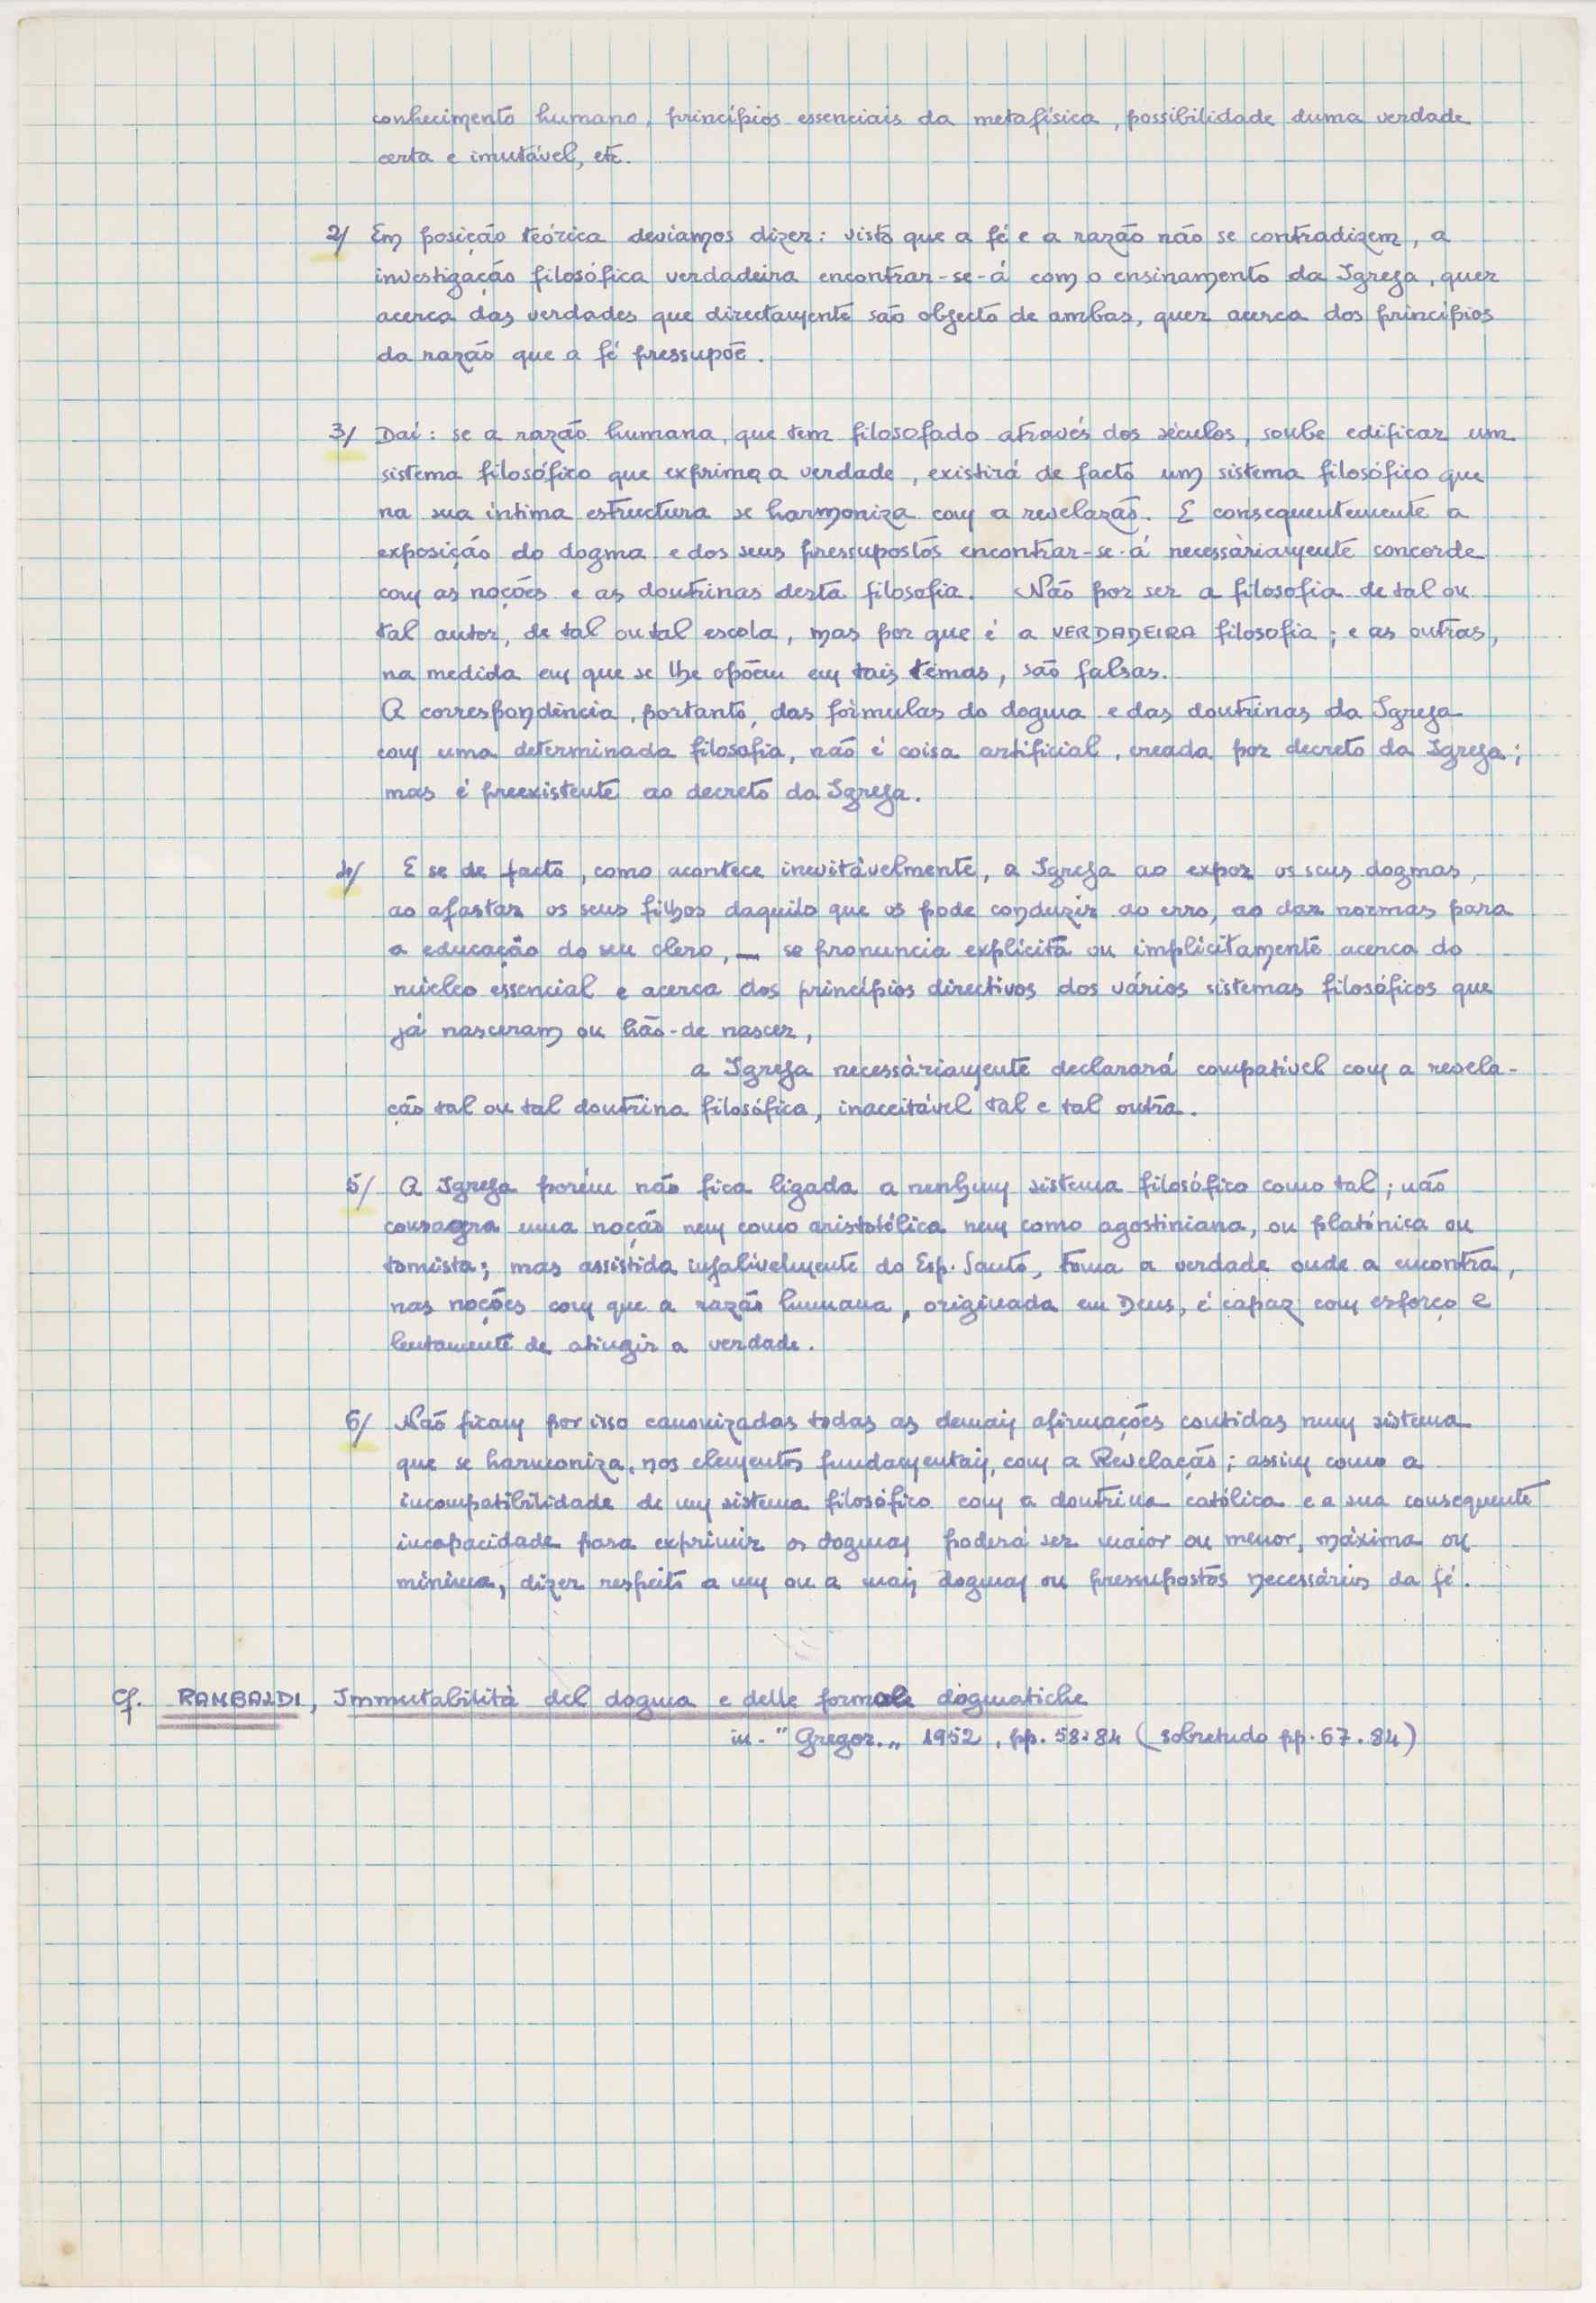 conhecimento humano, princípios essenciais da metafísica, possibilidade duma verdade
certa e imutável, etc.
2/ Em posição teórica devíamos dizer: visto que a fé e a razão não se contradizem, a
investigação filosófica verdadeira encontrar-se-á com o ensinamento da Igreja, quer
acerca das verdades que directamente são objecto de ambas, quer acerca dos princípios
da razão que a fé pressupõe.
3/ Daí: se a razão humana, que tem filosofado através dos séculos, soube edificar um
sistema filosófico que exprima a verdade, existirá de facto um sistema filosófico que
na sua íntima estructura se harmoniza com a revelação. E consequentemente a
exposição do dogma e dos seus pressupostos encontrar-se-á necessàriamente concorde
com as noções e as doutrinas desta filosofia. Não por ser a filosofia de tal ou
tal autor, de tal ou tal escola, mas por que é a VERDADEIRA filosofia; e as outras,
na medida em que se lhe opõem em tais temas, são falsas.
A correspondência, portanto, das fórmulas do dogma e das doutrinas da Igreja
com uma determinada filosofia, não é coisa artificial, creada por decreto da Igreja;
mas é preexistente ao decreto da Igreja.
4/ E se de facto, como acontece inevitàvelmente, a Igreja ao expor os seus dogmas,
ao afastar os seus filhos daquilo que os pode conduzir ao erro, ao dar normas para
a educação do seu clero, — se pronuncia explícita ou implìcitamente acerca do
núcleo essencial e acerca dos princípios directivos dos vários sistemas filosóficos que
já nasceram ou hão-de nascer,
a Igreja necessàriamente declarará compatível com a revela-
ção tal ou tal doutrina filosófica, inaceitável tal e tal outra.
5/ A Igreja porém não fica ligada a nenhum sistema filosófico como tal; não
consagra uma noção nem como aristotélica nem como agostiniana, ou platónica ou
tomista; mas assistida infalivelmente do Esp. Santo, toma a verdade onde a encontra,
nas noções com que a razão humana, originada em Deus, é capaz com esforço e
lentamente de atingir a verdade.
6/ Não ficam por isso canonizadas todas as demais afirmações contidas num sistema
que se harmoniza, nos elementos fundamentais, com a Revelação; assim como a
incompatibilidade de um sistema filosófico com a doutrina católica e a sua consequente
incapacidade para exprimir os dogmas poderá ser maior ou menor, máxima ou
mínima, dizer respeito a um ou a mais dogmas ou pressupostos necessários da fé.
Cf. RAMBALDI, Immutabilità del dogma e delle formole dogmatiche
in "Gregor.„ 1952, pp. 58-84 (sobretudo pp. 67-84)